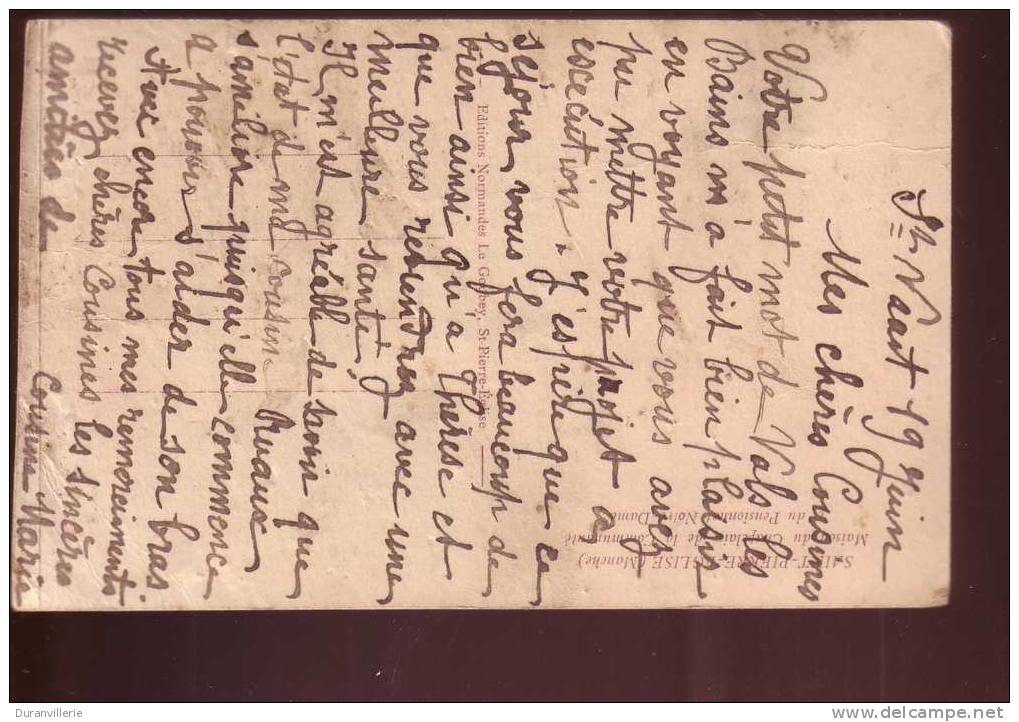 St Vaast 19 Juin
Mes chères Cousines
Votre petit mot de Vals les
Bains m'a fait bien plaisir
en voyant que vous avez
pu mettre votre projet a
escécution. J'espère que ce
séjour vous fera beaucoup de
bien ainsi qu'a Thérèse et
que vous reviendrez avec une
meilleure santé,
Il m'est agréable de savoir que
l'état d ma cousine Ruaux
s'améliore puisqu'elle commence
a pouvoir s'aider de son bras
Avec encor tous mes remerciments
recevez chères Cousines les sincères
amitiès de
Cousine Marie
Editions Normandes Le Goubey, St-Pierre-Eglise
SAINT-PIERRE-EGLISE (Manche)
Maison du Chapelain de la Communauté
du Pensionnat Notre-Dame
Duranvillerie
www.delcampe.net